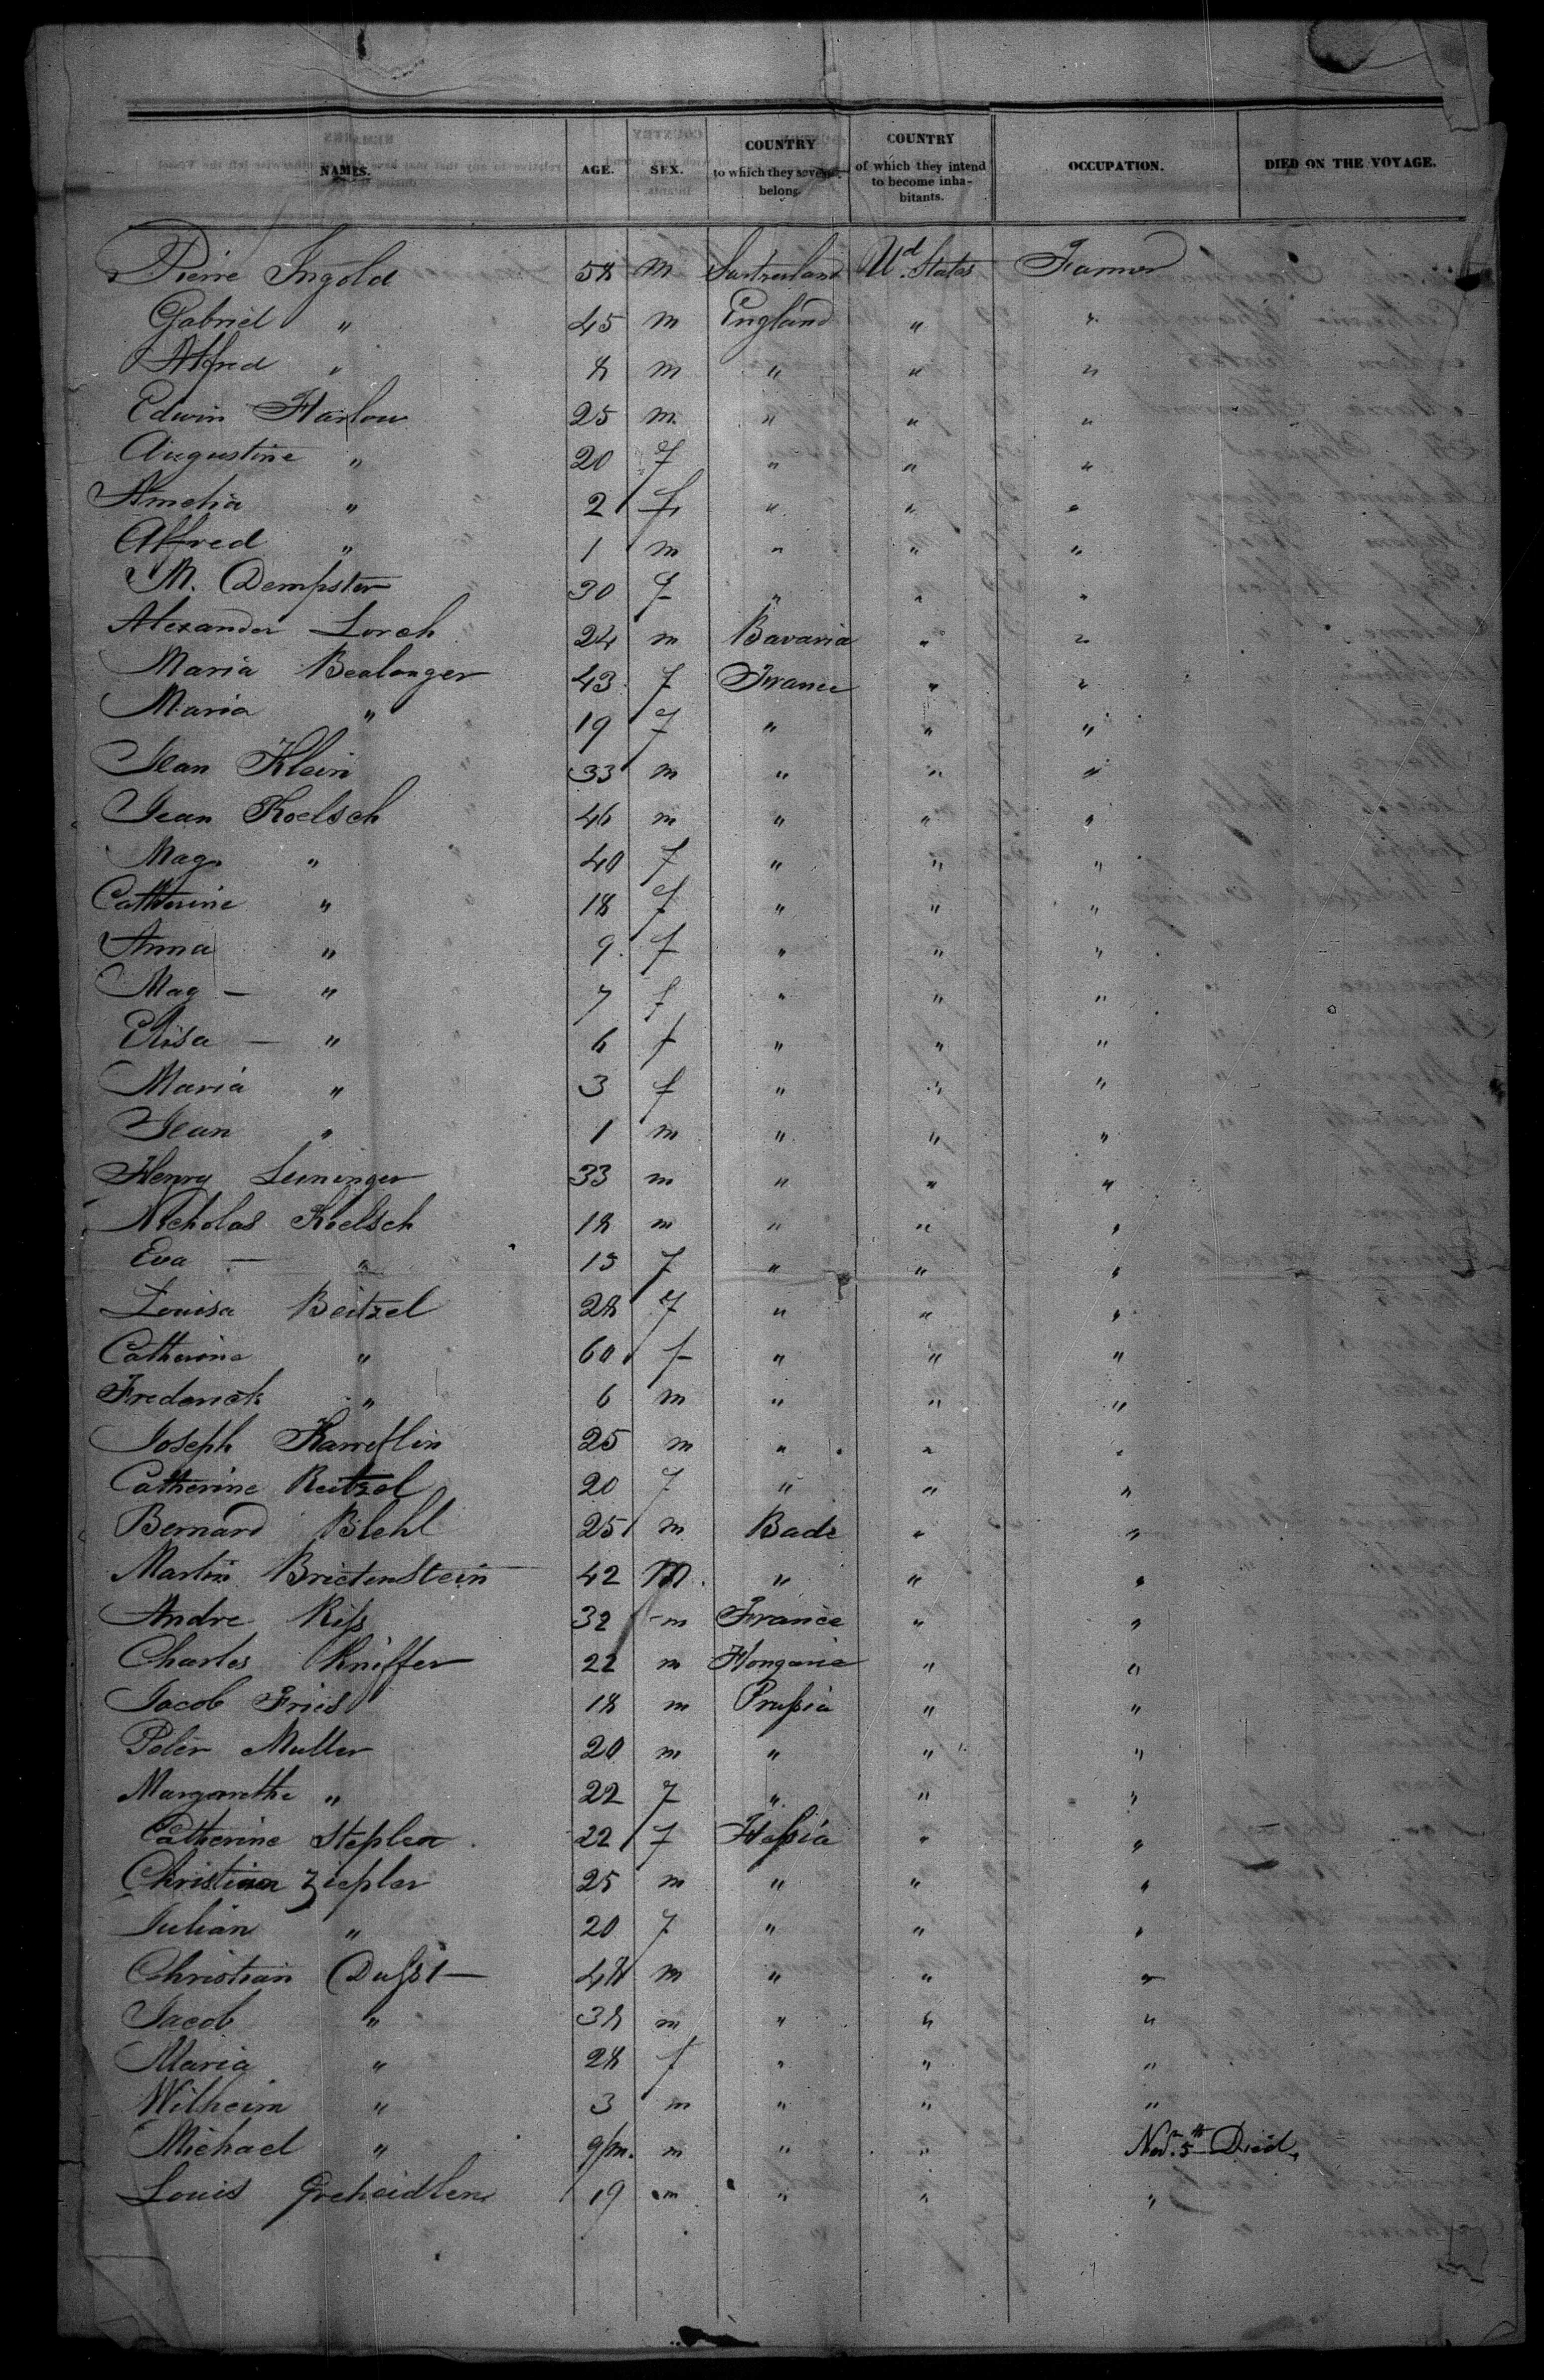 NAMES. AGE. SEX. COUNTRY to which they severally belong. COUNTRY of which they intend to become inhabitants. OCCUPATION. DIED ON THE VOYAGE.
Pierre Ingold 58 m Swtzerland Ud. States Farmer
Gabriel " 45 m England " "
Alfred " 8 m " " "
Edwin Harlow 25 m " " "
Augustine " 20 f " " "
Amelia " 2 f " " "
Alfred " 1 m " " "
M. Dempster 30 f " " "
Alexander Lorch 24 m Bavaria " "
Maria Bealonger 43 f France " "
Maria " 19 f " " "
Jean Klein 33 m " " "
Jean Koelsch 46 m " " "
Mag. " 40 f " " "
Catherine " 18 f " " "
Anna " 9 f " " "
Mag — " 7 f " " "
Elisa — " 6 f " " "
Maria " 3 f " " "
Jean " 1 m " " "
Henry Leininger 33 m " " "
Nicholas Koelsch 18 m " " "
Eva — " 15 f " " "
Louisa Beitzel 28 f " " "
Catherine " 60 f " " "
Frederick " 6 m " " "
Joseph 25 m " " "
Catherine Reitzel 20 f " " "
Bernard Blehl 25 m Bade " "
Martin Brietenstein 42 m " " "
Andre Riss 32 m France " "
Charles Kniffer 22 m Hongarie " "
Jacob Fries 18 m Prussia " "
Peter Muller 20 m " " "
Margarethe " 22 f " " "
Catherine Stepler 22 f Hessia " "
Christian Ziepler 25 m " " "
Julian " 20 f " " "
Christian Dusst 48 m " " "
Jacob " 38 m " " "
Maria " 28 f " " "
Wilheim " 3 m " " "
Michael " 9/m. m " " Nov. 5th Died.
Louis 19 m " " "